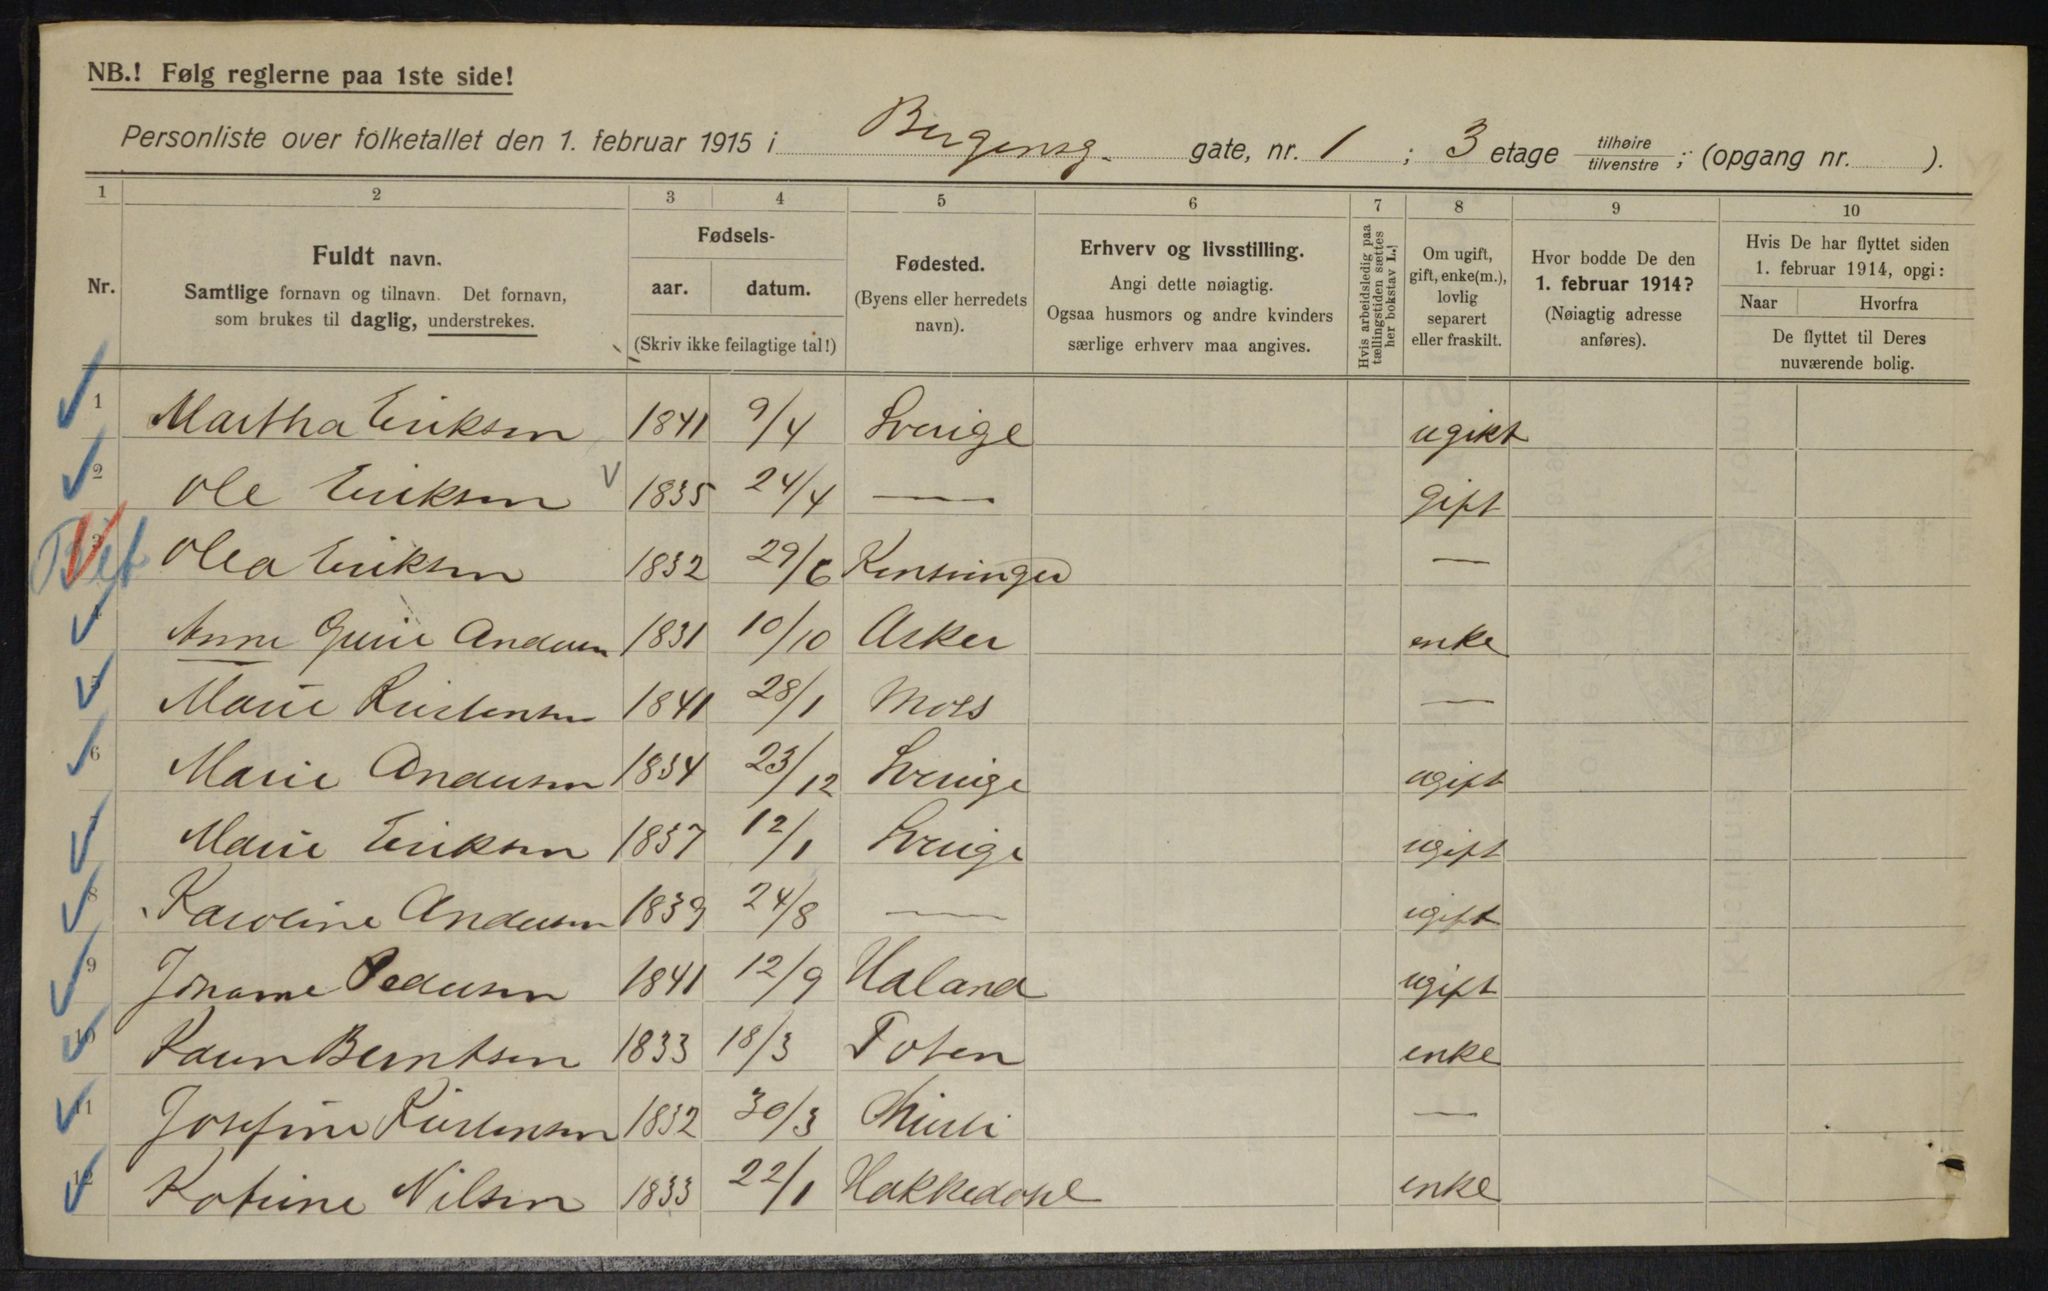 NB.! Følg reglerne paa 1ste side!
Personliste over folketallet den 1. februar 1915 i Bergensg. gate, nr. 1 ; 3 etage tilhøire/tilvenstre ; (opgang nr. ).
1 2 3 4 5 6 7 8 9 10
Nr.
Fuldt navn.
Samtlige fornavn og tilnavn. Det fornavn,
som brukes til daglig, understrekes.
Fødsels-
aar. datum.
(Skriv ikke feilagtige tal!)
Fødested.
(Byens eller herredets
navn).
Erhverv og livsstilling.
Angi dette nøiagtig.
Ogsaa husmors og andre kvinders
særlige erhverv maa angives.
Hvis arbeidsledig paa
tællingstiden sættes
her bokstav L.!
Om ugift,
gift, enke(m.),
lovlig
separert
eller fraskilt.
Hvor bodde De den
1. februar 1914?
(Nøiagtig adresse
anføres).
Hvis De har flyttet siden
1. februar 1914, opgi:
Naar Hvorfra
De flyttet til Deres
nuværende bolig.
1 Martha Eriksen 1841 9/4 Sverige ugikt
2 Ole Eriksen V 1835 24/4 — gift
3 Olea Eriksen 1832 29/6 —
4 Anne Gurie Andersen 1831 10/10 Asker enke
5 Marie Kristensen 1841 28/1 Moss —
6 Marie Andersen 1834 23/12 Sverige ugift
7 Marie Eriksen 1837 12/1 Sverige ugift
8 Karoline Andersen 1839 24/8 — ugift
9 Johanne Pedersen 1841 12/9 Haland ugift
10 Karen Berntsen 1833 18/3 Toten enke
11 Josefine Kristensen 1832 30/3 —
12 Katrine Nilsen 1833 22/1 Hakkedahl enke